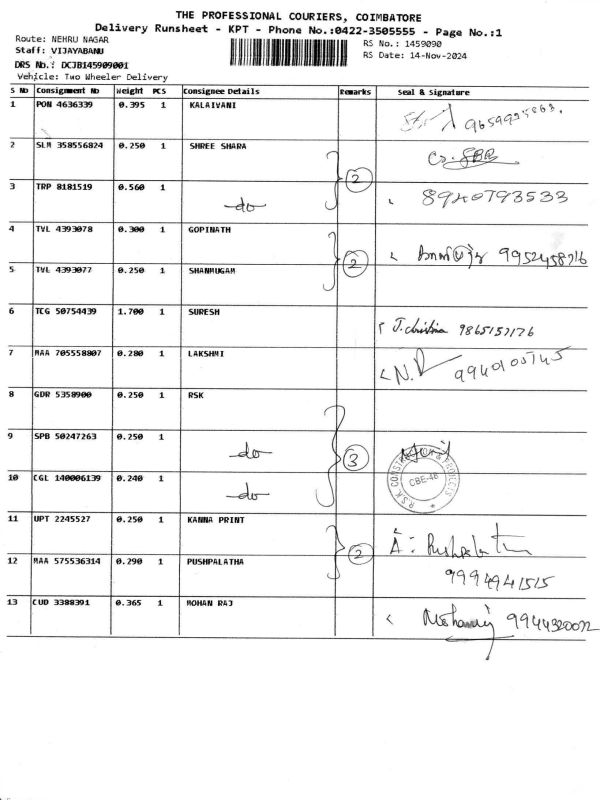 THE PROFESSIONAL COURIERS, COIMBATORE
Delivery Runsheet - KPT - Phone No.:0422-3505555 - Page No.:1
Route: NEHRU NAGAR RS No.: 1459090
Staff: VIJAYABANU RS Date: 14-Nov-2024
DRS No.: DCJB145909001
Vehicle: Two Wheeler Delivery
S No Consignment No Weight PCS Consignee Details Remarks Seal & Signature
1 PON 4636339 0.395 1 KALAIVANI
2 SLM 358556824 0.250 1 SHREE SHARA
3 TRP 8181519 0.560 1 do 2 8940793533
4 TVL 4393078 0.300 1 GOPINATH
5 TVL 4393077 0.250 1 SHANMUGAM 2
6 TCG 50754439 1.700 1 SURESH J. christina
7 MAA 705558807 0.280 1 LAKSHMI N.
8 GDR 5358900 0.250 1 RSK
9 SPB 50247263 0.250 1 do 3
10 CGL 140006139 0.240 1 do
CBE-48
11 UPT 2245527 0.250 1 KANNA PRINT
12 MAA 575536314 0.290 1 PUSHPALATHA 2 9994941515
13 CUD 3388391 0.365 1 MOHAN RAJ